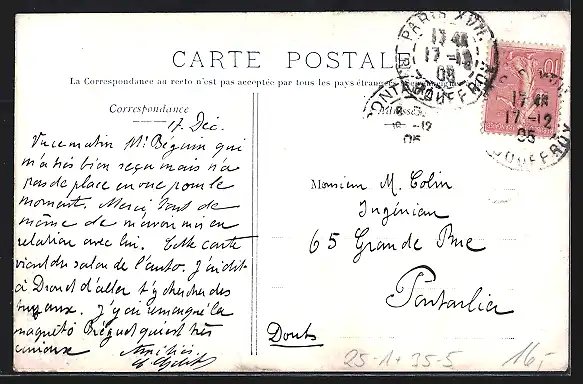 CARTE POSTALE
La Correspondance au recto n'est pas acceptée par tous les pays étrangers
Correspondance
Adresse
PARIS XVII.
17 45
17 -12
05
JOUFFROY
PONTARLIER
-12
05
17 45
17 -12
05
JOUFFROY
10
17 Déc.
Vu ce matin Mr Béguin qui
m'a très bien reçu mais n'a
pas de place en vue pour le
moment. Merci tout de
même de m'avoir mis en
relation avec lui. Cette carte
vient du salon de l'auto. J'ai dit
à Droust d'aller t'y chercher des
tuyaux. J'y ai remarqué la
maquette Bréguet qui est très
curieux
Amitiés
Monsieur M. Colin
Ingénieur
65 Grande Rue
Pontarlier
Doubs
25-1+35-5
16,-